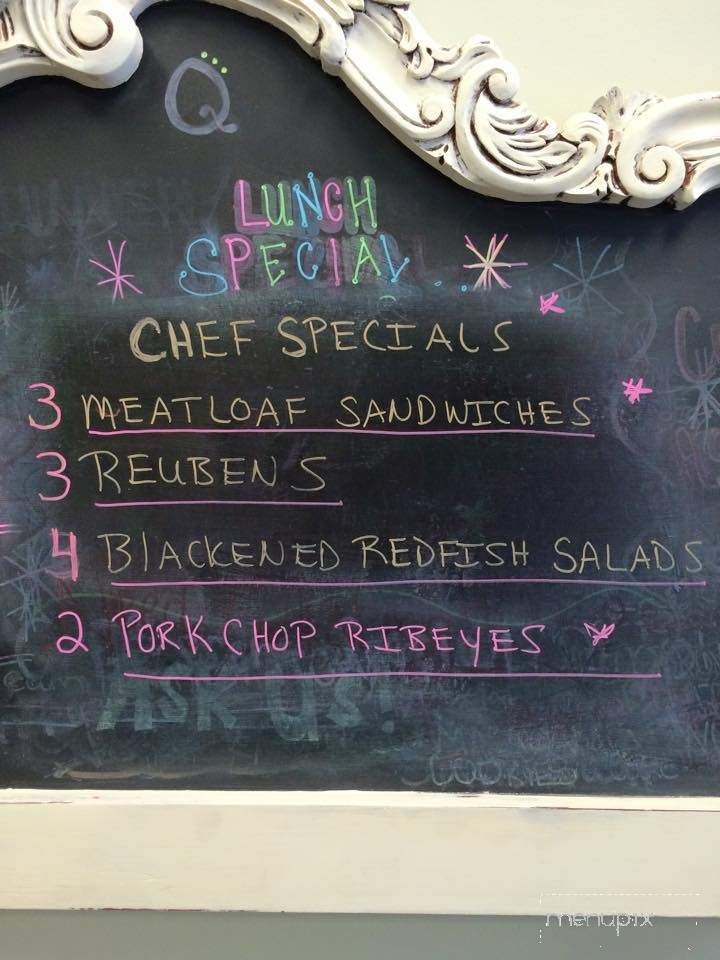 Q
LUNCH
SPECIAL...
CHEF SPECIALS
3 MEATLOAF SANDWICHES
3 REUBENS
4 BLACKENED REDFISH SALADS
2 PORKCHOP RIBEYES
ASK US!
COOKIES
menupix